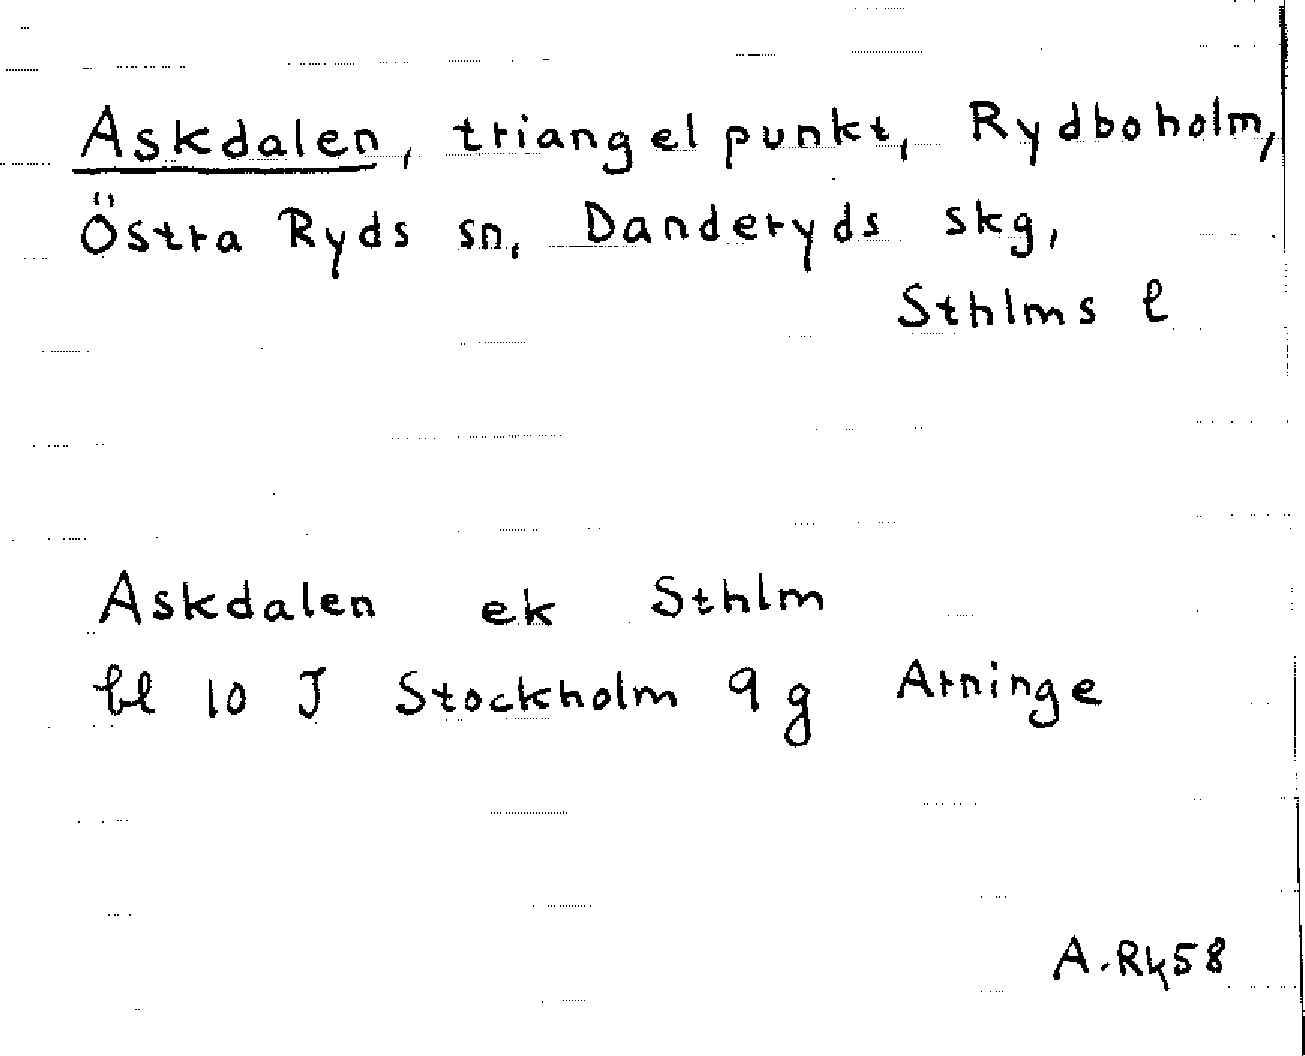 Askdalen, triangelpunkt, Rydboholm,
Östra Ryds sn, Danderyds skg,
Sthlms l
Askdalen ek Sthlm
bl 10 J Stockholm 9 g Arninge
A.Rk58